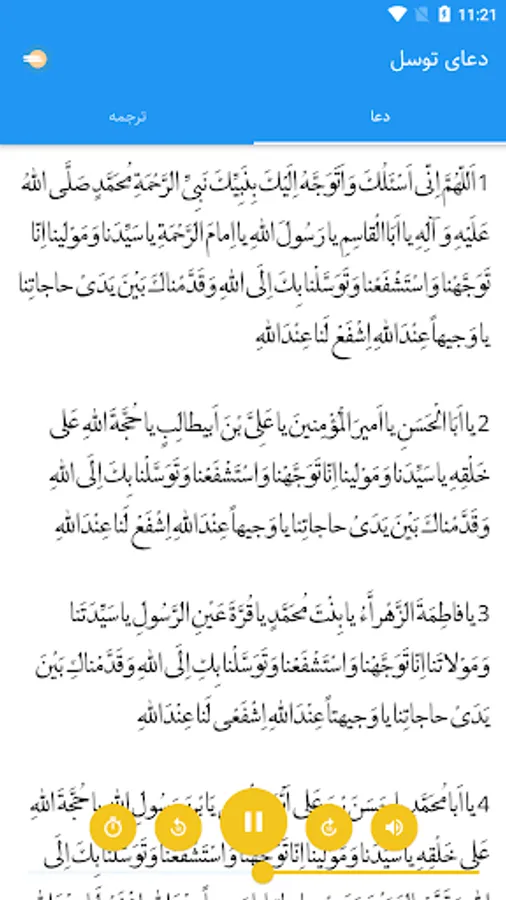 11:21
دعای توسل
دعا
ترجمه
1 اَللّهُمَّ اِنّی اَسْئَلُكَ وَ اَتَوَجَّهُ اِلَیْكَ بِنَبِیِّكَ نَبِیِّ الرَّحْمَةِ مُحَمَّدٍ صَلَّی اللهُ
عَلَیْهِ وَ آلِهِ یا اَبَا الْقاسِمِ یا رَسُولَ اللهِ یا اِمامَ الرَّحْمَةِ یا سَیِّدَنا وَ مَوْلینا اِنّا
تَوَجَّهْنا وَ اسْتَشْفَعْنا وَ تَوَسَّلْنا بِكَ اِلَی اللهِ وَ قَدَّمْناكَ بَیْنَ یَدَیْ حاجاتِنا
یا وَجیهاً عِنْدَ اللهِ اِشْفَعْ لَنا عِنْدَ اللهِ
2 یا اَبَا الْحَسَنِ یا اَمیرَ الْمُؤْمِنینَ یا عَلِیَّ بْنَ اَبیطالِبٍ یا حُجَّةَ اللهِ عَلی
خَلْقِهِ یا سَیِّدَنا وَ مَوْلینا اِنّا تَوَجَّهْنا وَ اسْتَشْفَعْنا وَ تَوَسَّلْنا بِكَ اِلَی اللهِ
وَ قَدَّمْناكَ بَیْنَ یَدَیْ حاجاتِنا یا وَجیهاً عِنْدَ اللهِ اِشْفَعْ لَنا عِنْدَ اللهِ
3 یا فاطِمَةَ الزَّهْراَّءُ یا بِنْتَ مُحَمَّدٍ یا قُرَّةَ عَیْنِ الرَّسُولِ یا سَیِّدَتَنا
وَ مَوْلاتَنا اِنّا تَوَجَّهْنا وَ اسْتَشْفَعْنا وَ تَوَسَّلْنا بِكِ اِلَی اللهِ وَ قَدَّمْناكِ بَیْنَ
یَدَیْ حاجاتِنا یا وَجیهتاً عِنْدَ اللهِ اِشْفَعی لَنا عِنْدَ اللهِ
4 یا اَبا مُحَمَّدٍ یا حَسَنَ بْنَ عَلِی یَا بْنَ رَسُولِ اللهِ یا حُجَّةَ اللهِ
عَلی خَلْقِهِ یا سَیِّدَنا وَ مَوْلینا اِنّا تَوَجَّهْنا وَ اسْتَشْفَعْنا وَ تَوَسَّلْنا بِكَ اِلَی